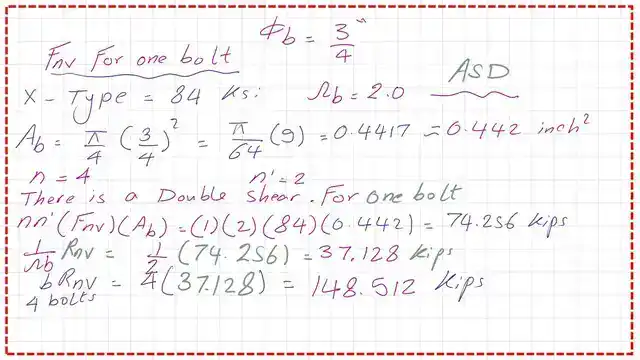 Φb = 3/4"
Fnv For one bolt
ASD
X - Type = 84 Ksi Ωb = 2.0
Ab = π/4 (3/4)² = π/64 (9) = 0.4417 = 0.442 inch²
n = 4 n' = 2
There is a Double shear. For one bolt
nn' (Fnv)(Ab) = (1)(2)(84)(0.442) = 74.256 kips
1/Ωb Rnv = 1/2 (74.256) = 37.128 Kips
b Rnv = 4(37.128) = 148.512 Kips
4 bolts